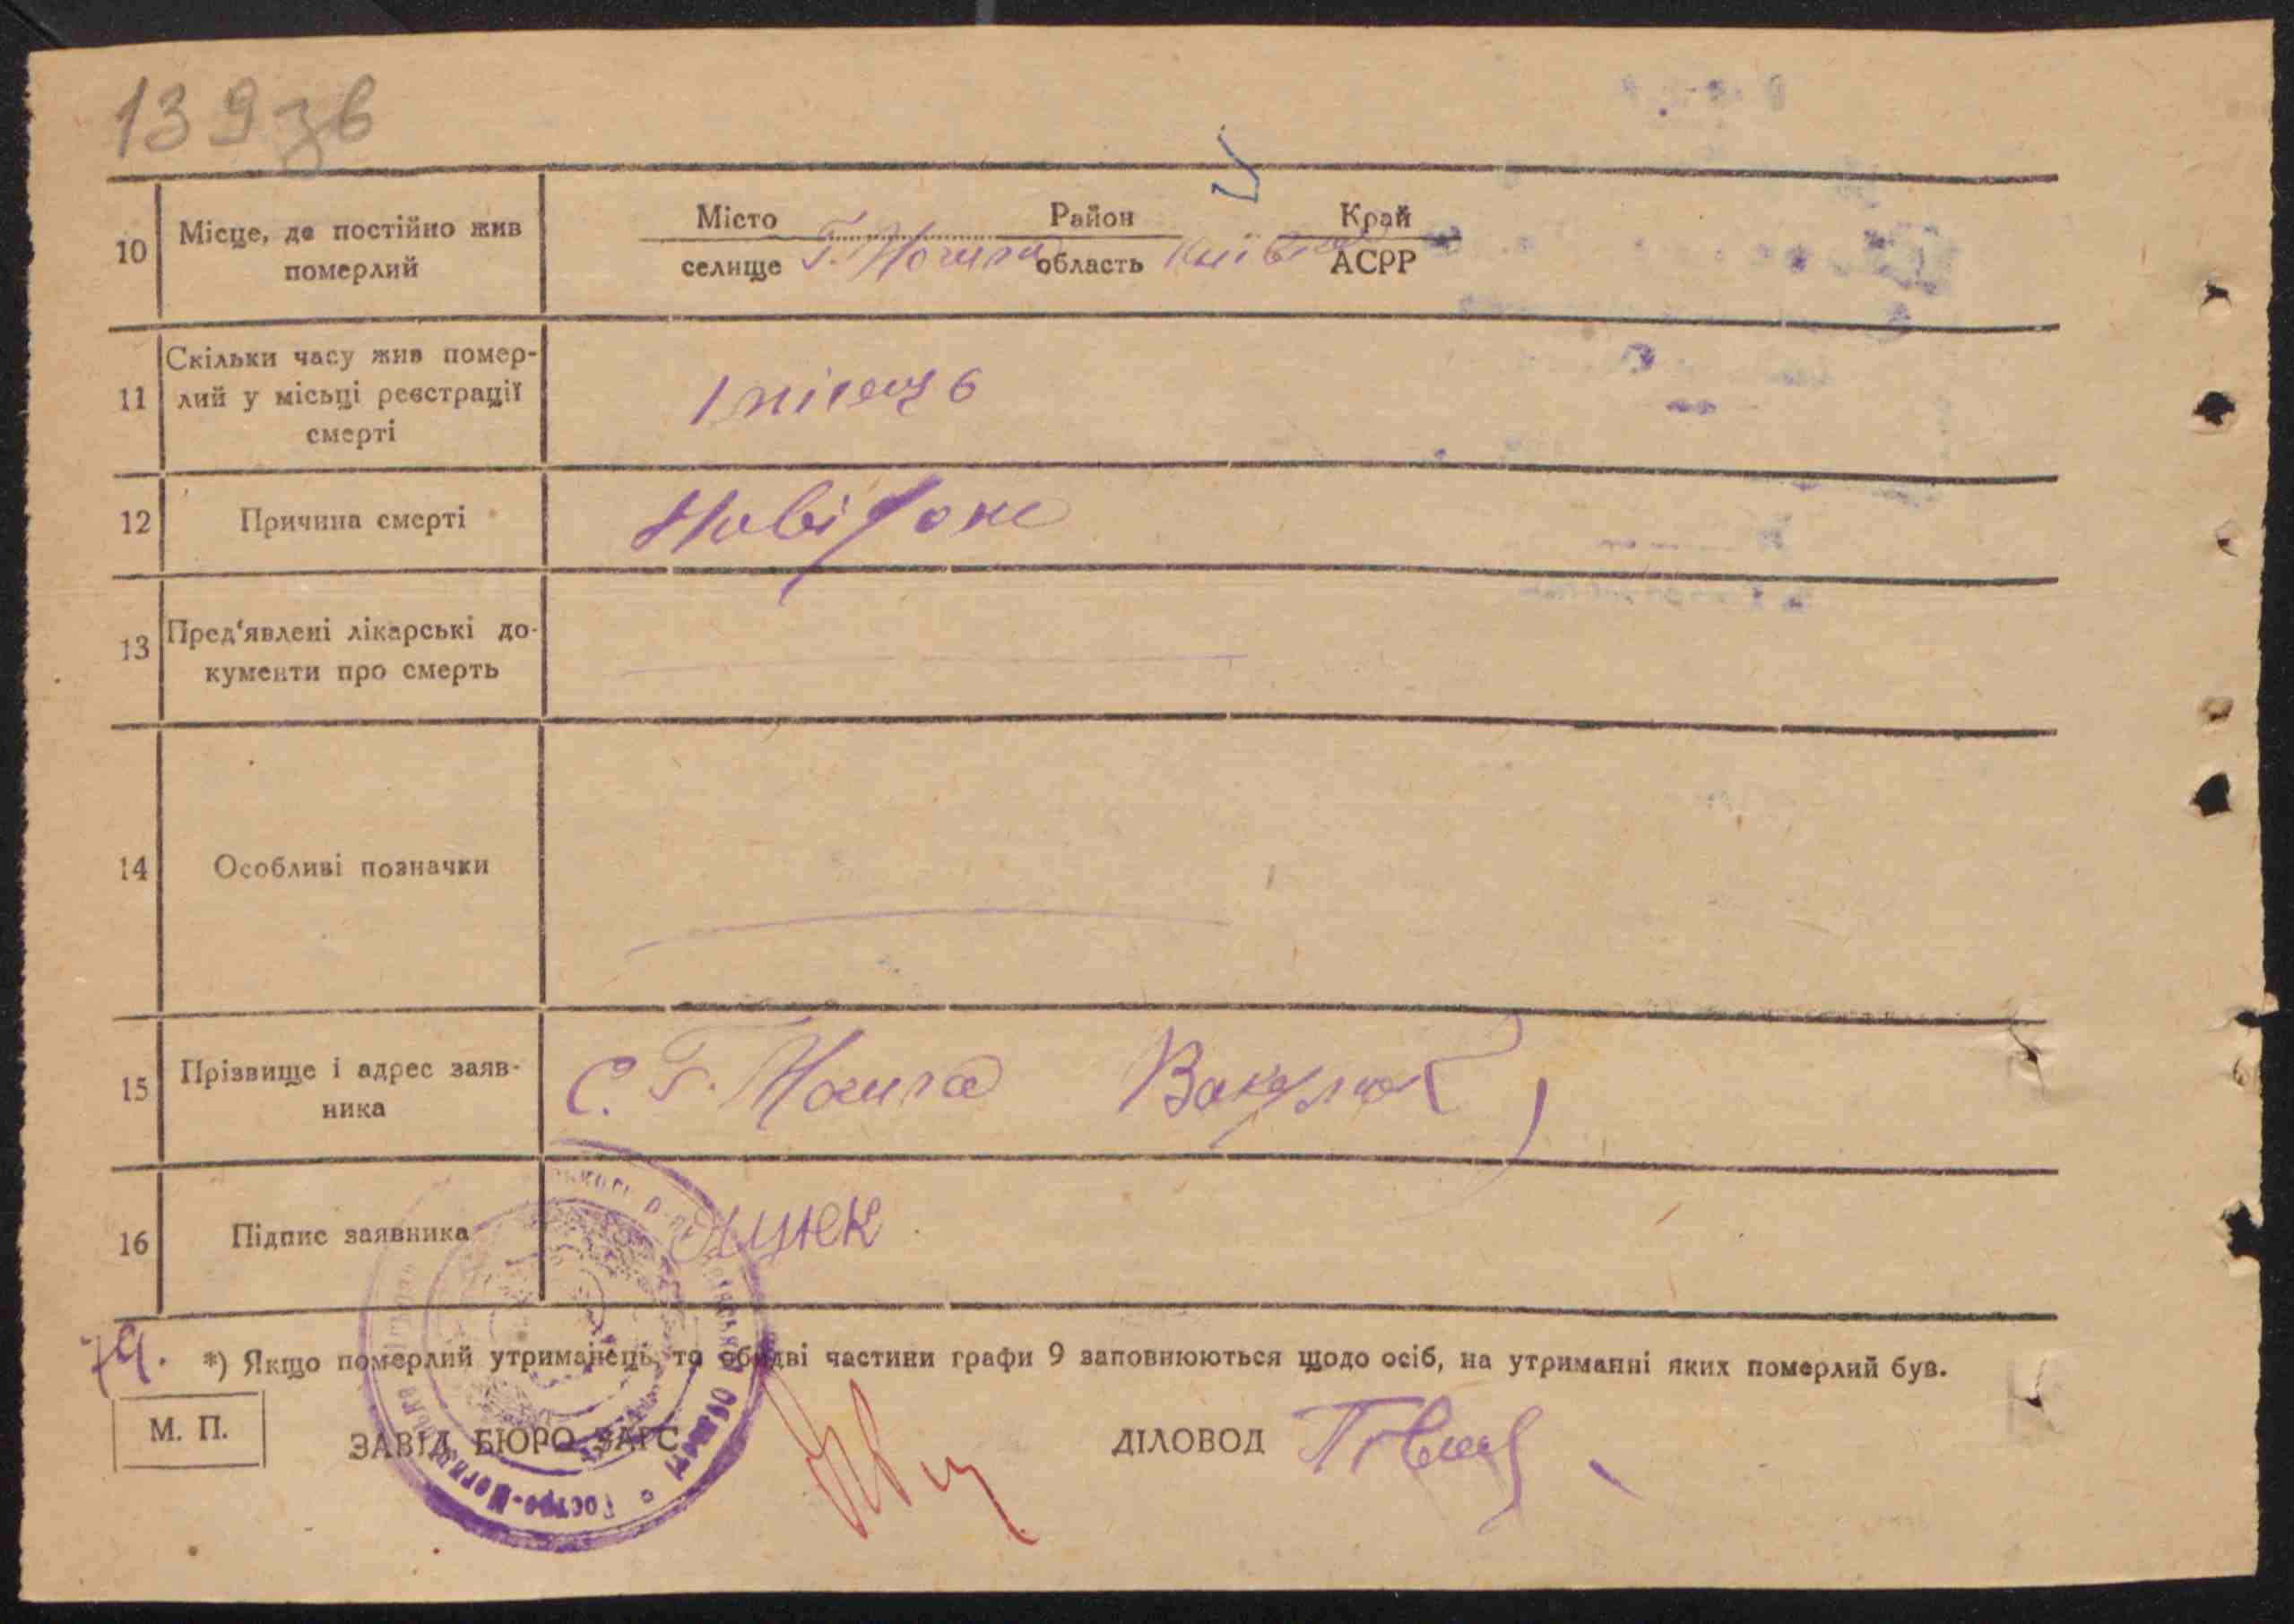 139зв
10 Місце, де постійно жив померлий
Місто Район Край
селище Г. Могила область Київська АСРР
11 Скільки часу жив помер-
лий у місьці реєстрації
смерті
1 місяць
12 Причина смерті
13 Пред'явлені лікарські до-
кументи про смерть
14 Особливі позначки
15 Прізвище і адрес заяв-
ника
С. Г. Могила
16 Підпис заявника
*) Якщо померлий утриманець, то обидві частини графи 9 заповнюються щодо осіб, на утриманні яких померлий був.
М. П.
ЗАВІД БЮРО ЗАГС
ДІЛОВОД